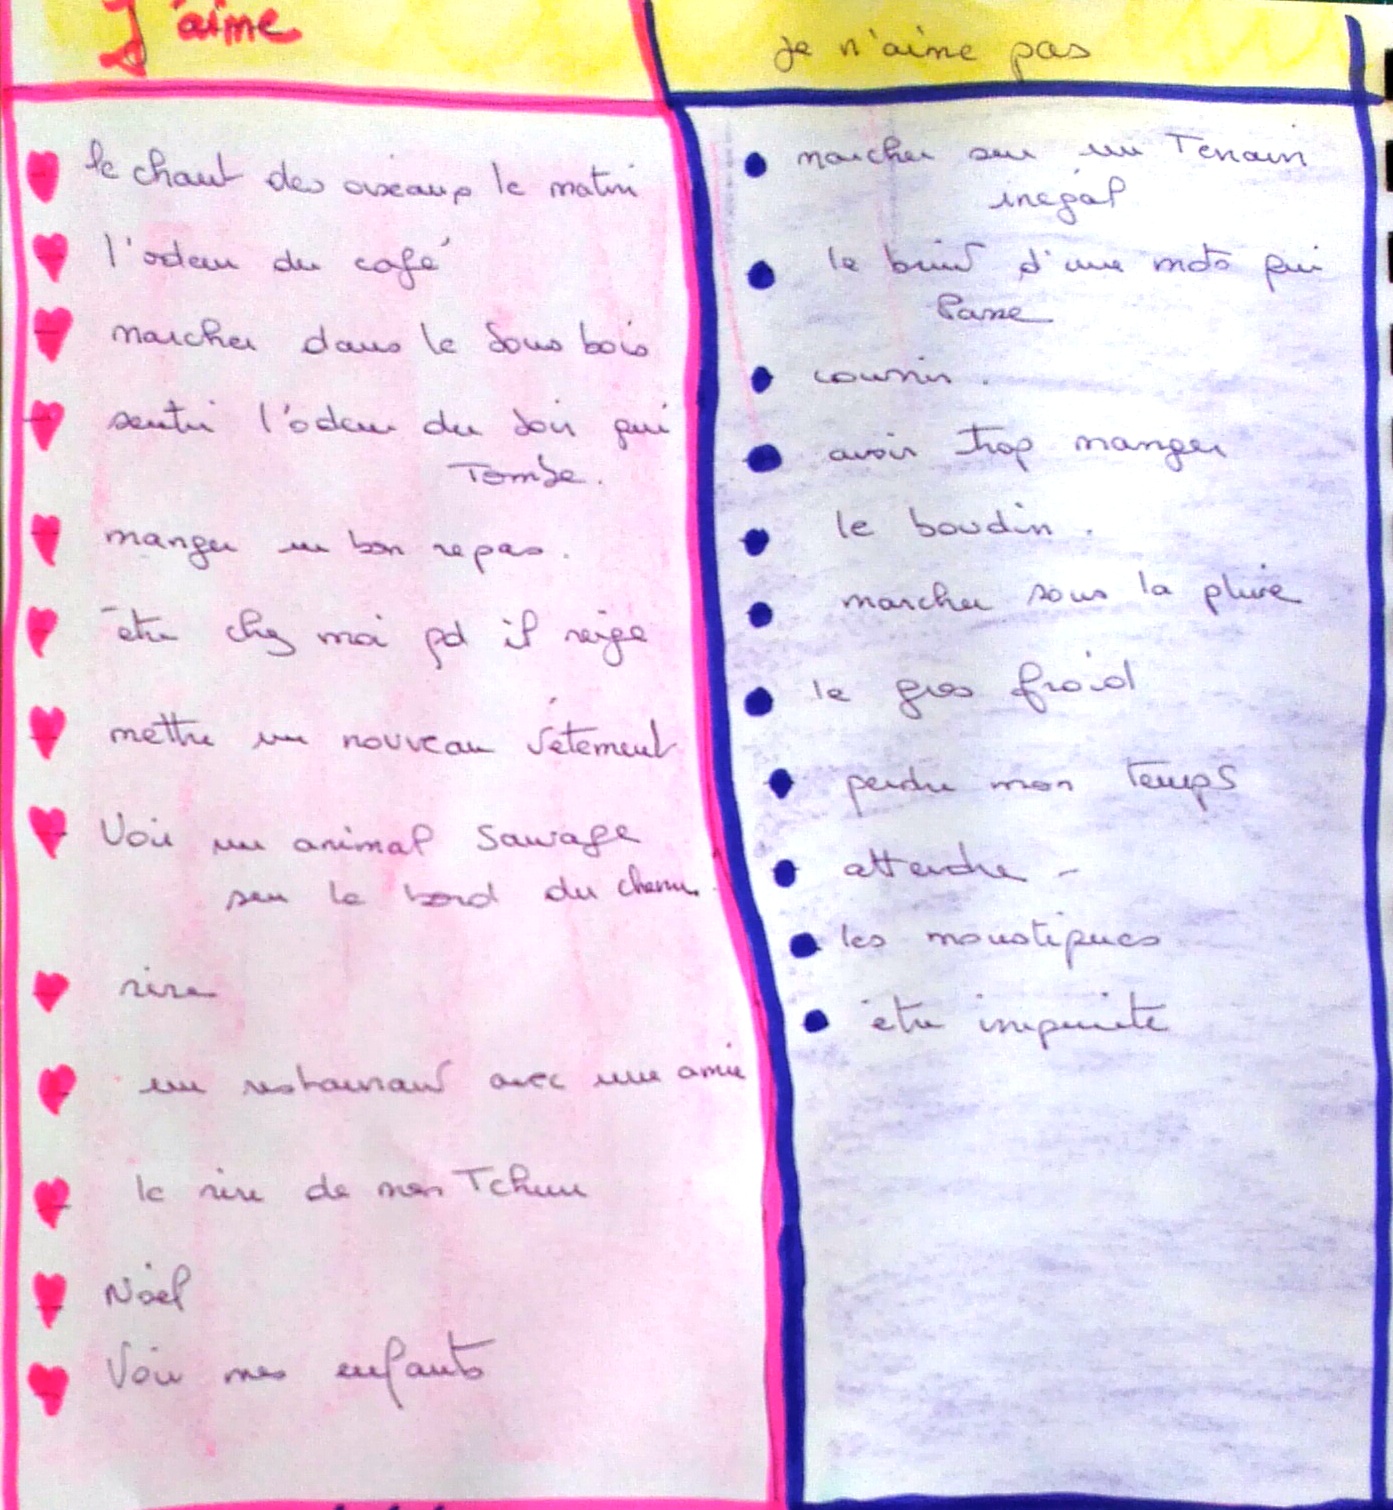 J'aime
le chant des oiseaux le matin
l'odeur du café
marcher dans le sous bois
sentir l'odeur du soir qui
Tombe.
manger un bon repas.
être chez moi qd il neige
mettre un nouveau vêtement
Voir un animal sauvage
sur le bord du chemin.
rire
un restaurant avec une amie
le rire de mon
Noël
Voir mes enfants
je n'aime pas
marcher sur un Terrain
inégal
le bruit d'une moto qui
Passe
courrir.
avoir trop manger
le boudin.
marcher sous la pluie
le gros froid
perdre mon temps
attendre -
les moustiques
être